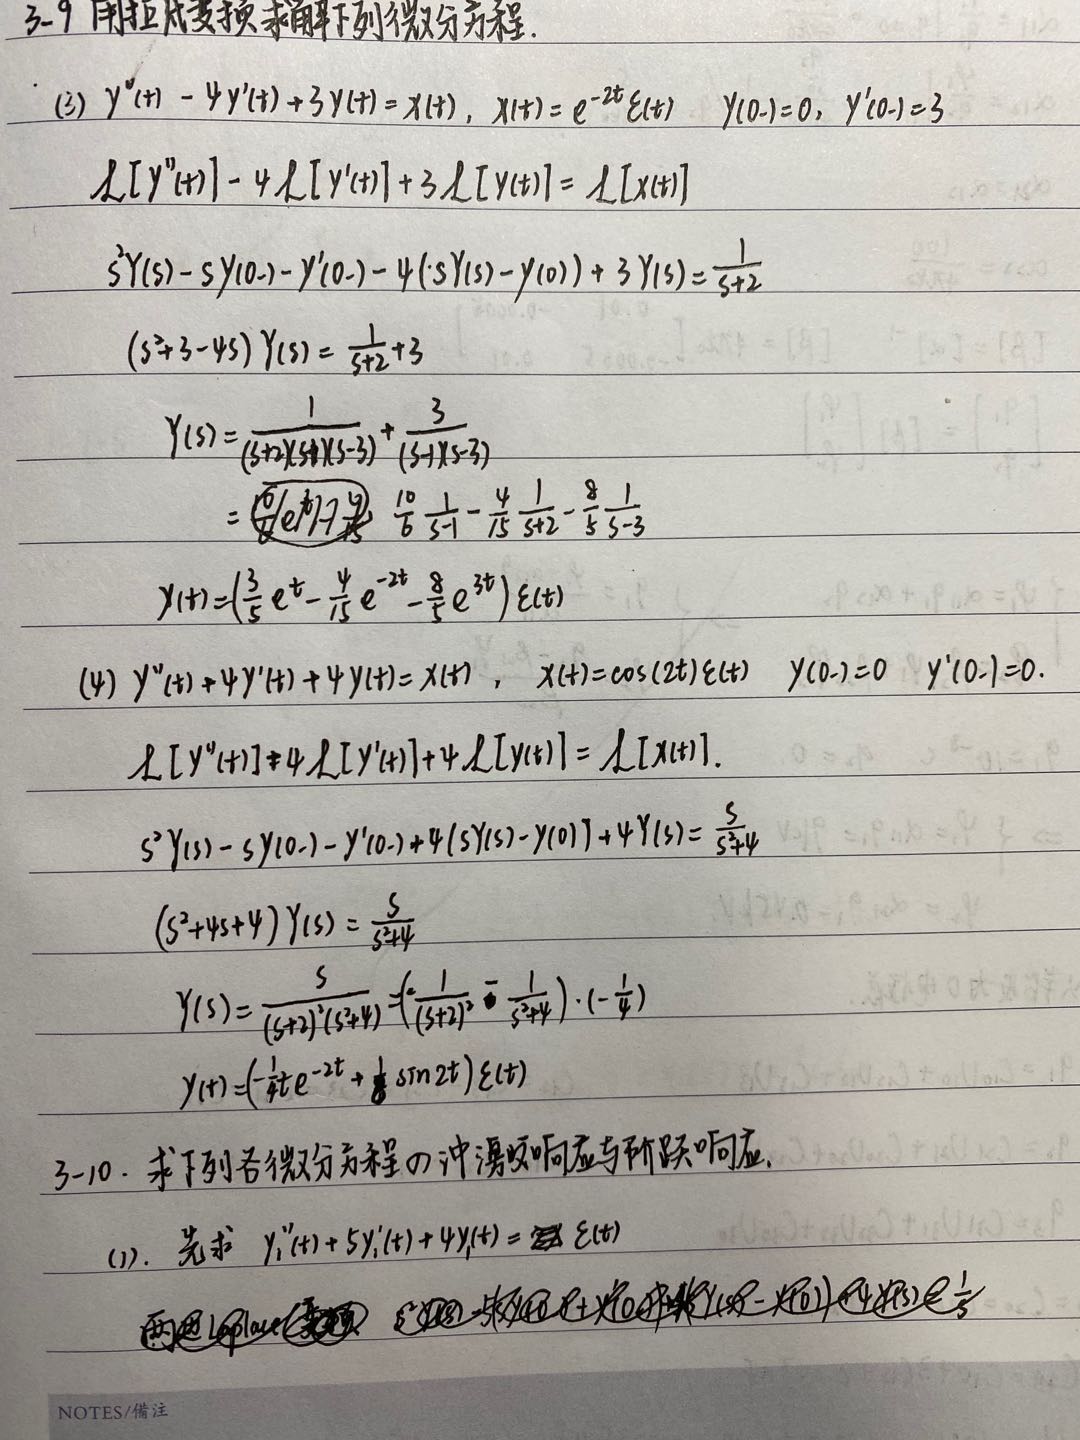 3-9 用拉氏变换求解下列微分方程.
(3) y''(t) - 4y'(t) + 3y(t) = x(t), x(t) = e^{-2t} ε(t) y(0-)=0, y'(0-)=3
ℒ[y''(t)] - 4ℒ[y'(t)] + 3ℒ[y(t)] = ℒ[x(t)]
s²Y(s) - sy(0-) - y'(0-) - 4(sY(s) - y(0)) + 3Y(s) = \frac{1}{s+2}
(s²+3-4s) Y(s) = \frac{1}{s+2} + 3
Y(s) = \frac{1}{(s+2)(s-1)(s-3)} + \frac{3}{(s-1)(s-3)}
= \frac{10}{6} \frac{1}{s-1} - \frac{4}{15} \frac{1}{s+2} - \frac{8}{5} \frac{1}{s-3}
y(t) = (\frac{3}{5} e^{t} - \frac{4}{15} e^{-2t} - \frac{8}{5} e^{3t}) ε(t)
(4) y''(t) + 4y'(t) + 4y(t) = x(t), x(t) = cos(2t) ε(t) y(0-)=0 y'(0-)=0.
ℒ[y''(t)] + 4ℒ[y'(t)] + 4ℒ[y(t)] = ℒ[x(t)].
s²Y(s) - sy(0-) - y'(0-) + 4(sY(s) - y(0)] + 4Y(s) = \frac{s}{s²+4}
(s²+4s+4) Y(s) = \frac{s}{s²+4}
Y(s) = \frac{s}{(s+2)²(s²+4)} = (\frac{1}{(s+2)²} - \frac{1}{s²+4}) · (-\frac{1}{4})
y(t) = (-\frac{1}{4} t e^{-2t} + \frac{1}{8} sin2t) ε(t)
3-10. 求下列各微分方程の冲激响应与阶跃响应.
(1). 先求 y₁''(t) + 5y₁'(t) + 4y₁(t) = ε(t)
NOTES/備注